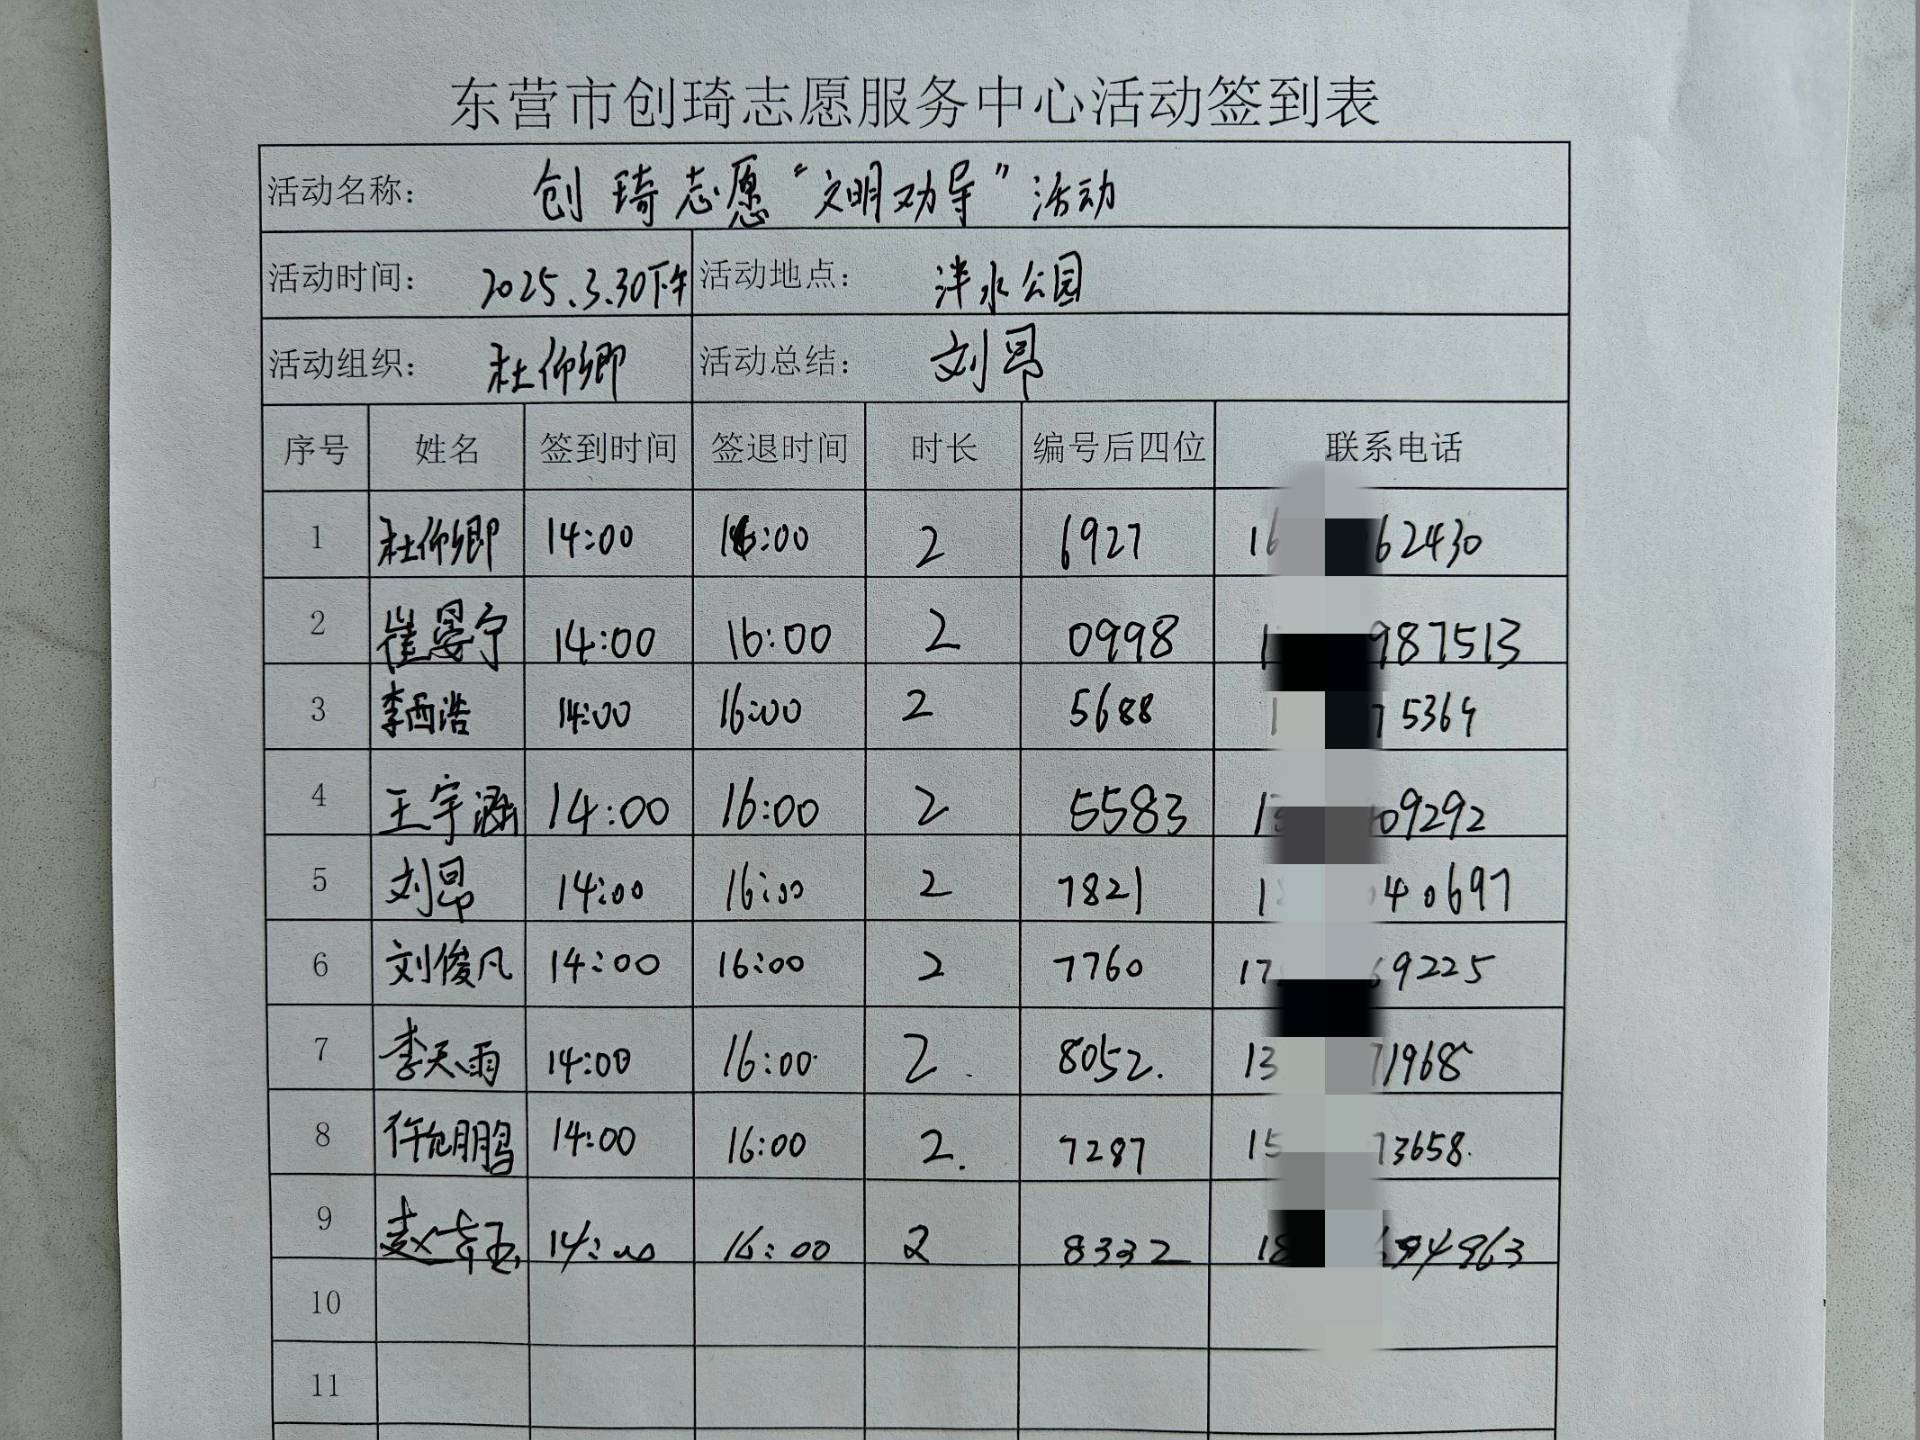 东营市创琦志愿服务中心活动签到表
活动名称： 创琦志愿“文明劝导”活动
活动时间： 2025.3.30下午 活动地点： 泮水公园
活动组织： 杜仰卿 活动总结： 刘昂
序号 姓名 签到时间 签退时间 时长 编号后四位 联系电话
1 杜仰卿 14:00 16:00 2 6927 16 62430
2 崔晏宁 14:00 16:00 2 0998 1 987513
3 李西浩 14:00 16:00 2 5688 1 75364
4 王宇涵 14:00 16:00 2 5583 15 09292
5 刘昂 14:00 16:00 2 7821 1 040697
6 刘俊凡 14:00 16:00 2 7760 17 69225
7 李天雨 14:00 16:00 2. 8052. 13 71968
8 鹏 14:00 16:00 2. 7287 15 73658.
9 赵 14:00 16:00 2 8332 18 94963
10
11